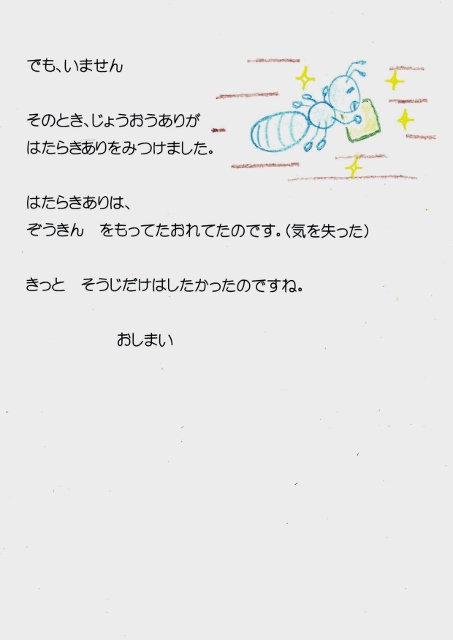 でも、いません
そのとき、じょうおうありが
はたらきありをみつけました。
はたらきありは、
ぞうきん　をもってたおれてたのです。（気を失った）
きっと　そうじだけはしたかったのですね。
おしまい